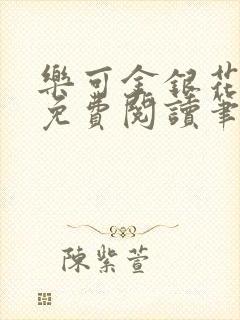 樂可金銀花
免費閱讀筆
陳紫萱